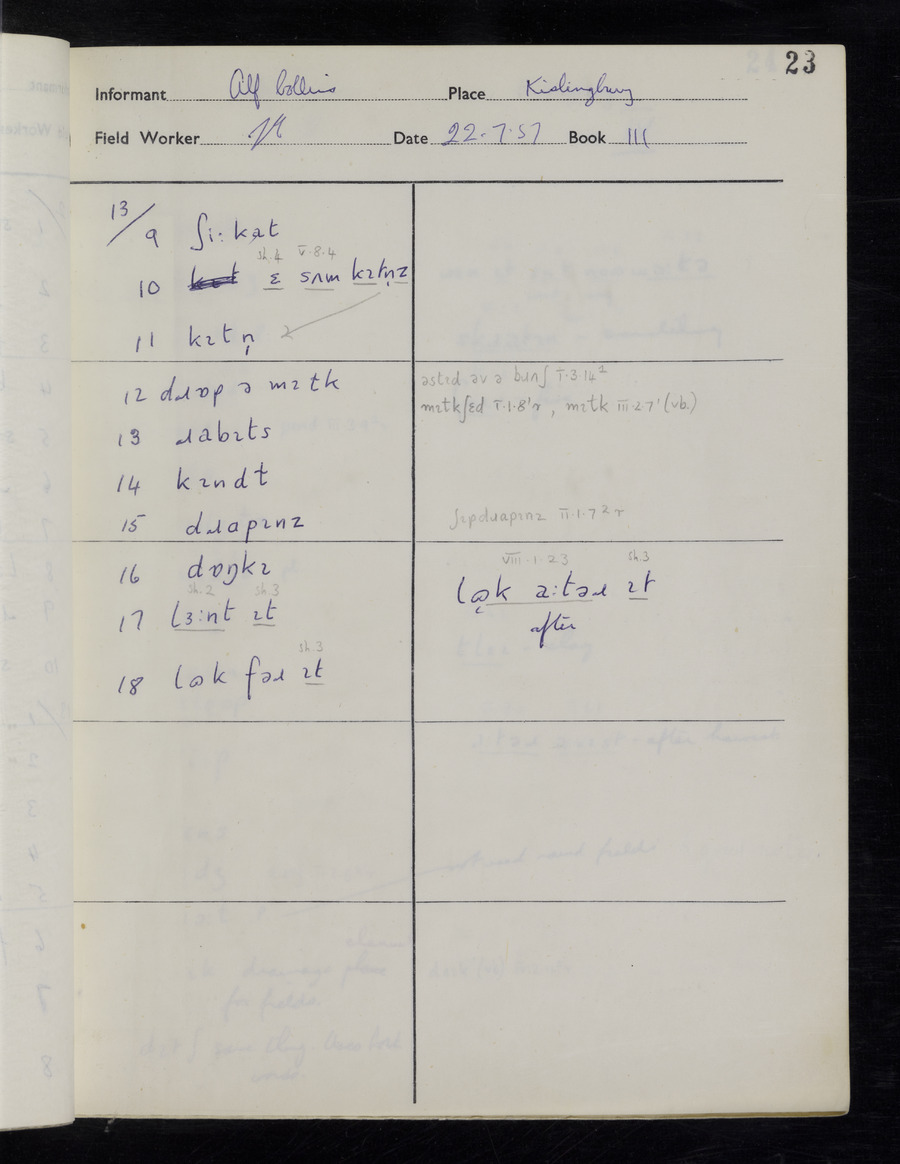 23
Informant Alf Collins Place Kislingbury
Field Worker Date 22.7.57 Book III
13/
9 ʃiːkat
sh.4 v.8.4
10 ɛ sʌm kɪtn̩z
11 kɪtn̩
12 dɹɒp ə mɪtk
əstɪd əv ə bʌnʃ I.3.14¹
mɪtkʃɛd I.1.8'r , mɪtk III.27' (vb.)
13 ɹabɪts
14 kɪndt
15 dɹapɪnz
ʃɪpdɹapɪnz II.1.7²r
16 dɒŋkɪ
sh.2 sh.3
17 lɜːnt ɪt
VIII.1.23 sh.3
lɷk aːtəɹ ɪt
after
sh.3
18 lɷk fəɹ ɪt